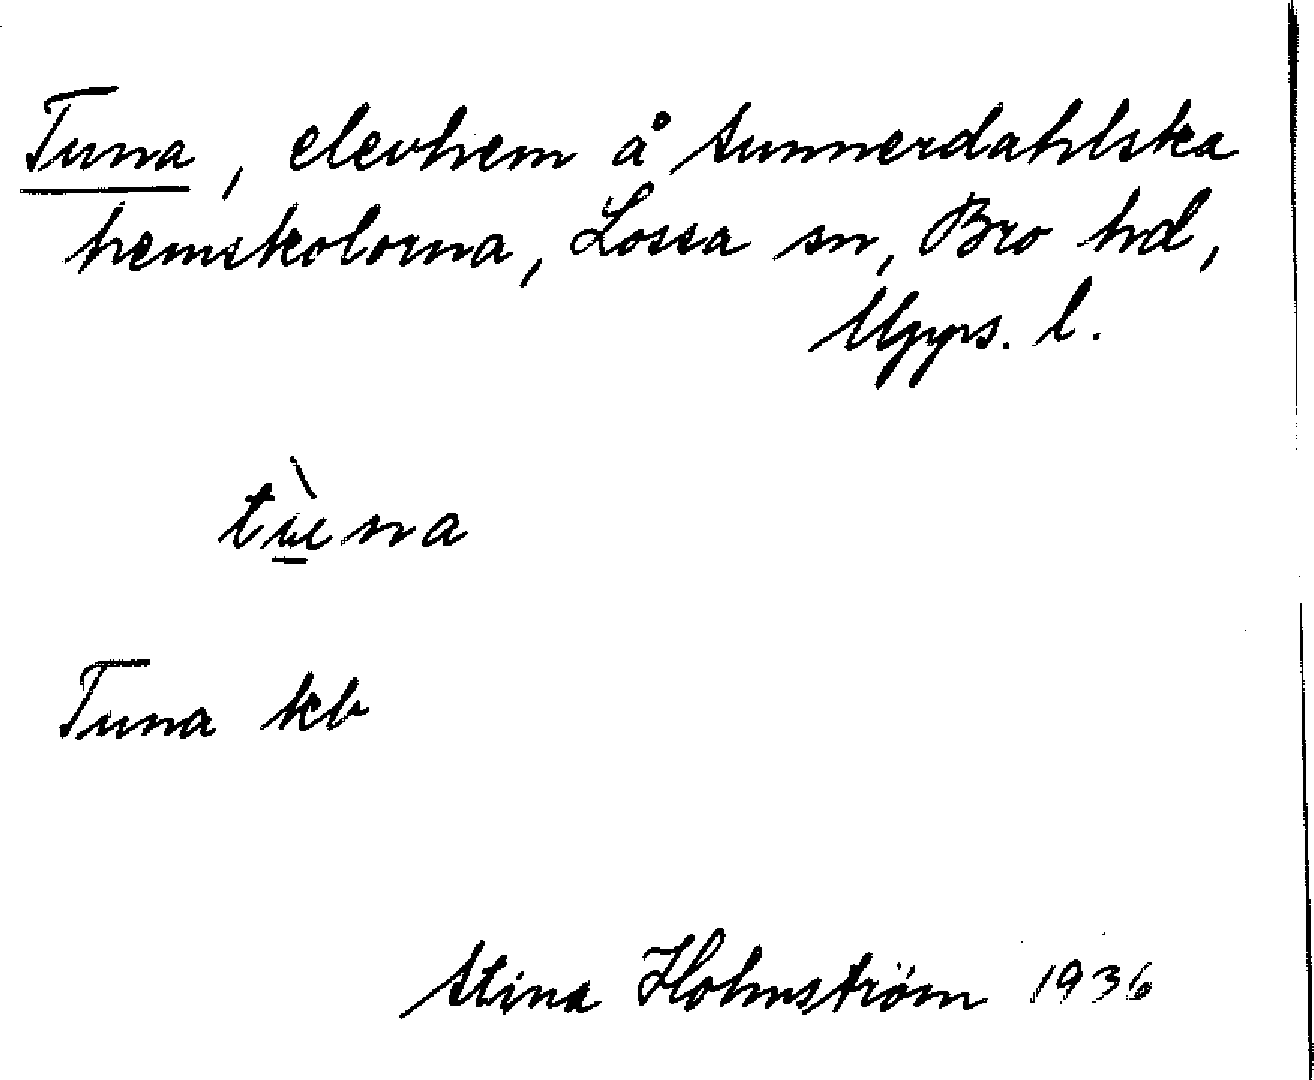 Tuna, elevhem å Sunnerdahlska
hemskolorna, Lossa sn, Bro hd,
Upps. l.
tùna
Tuna kb
Stina Holmström 1936